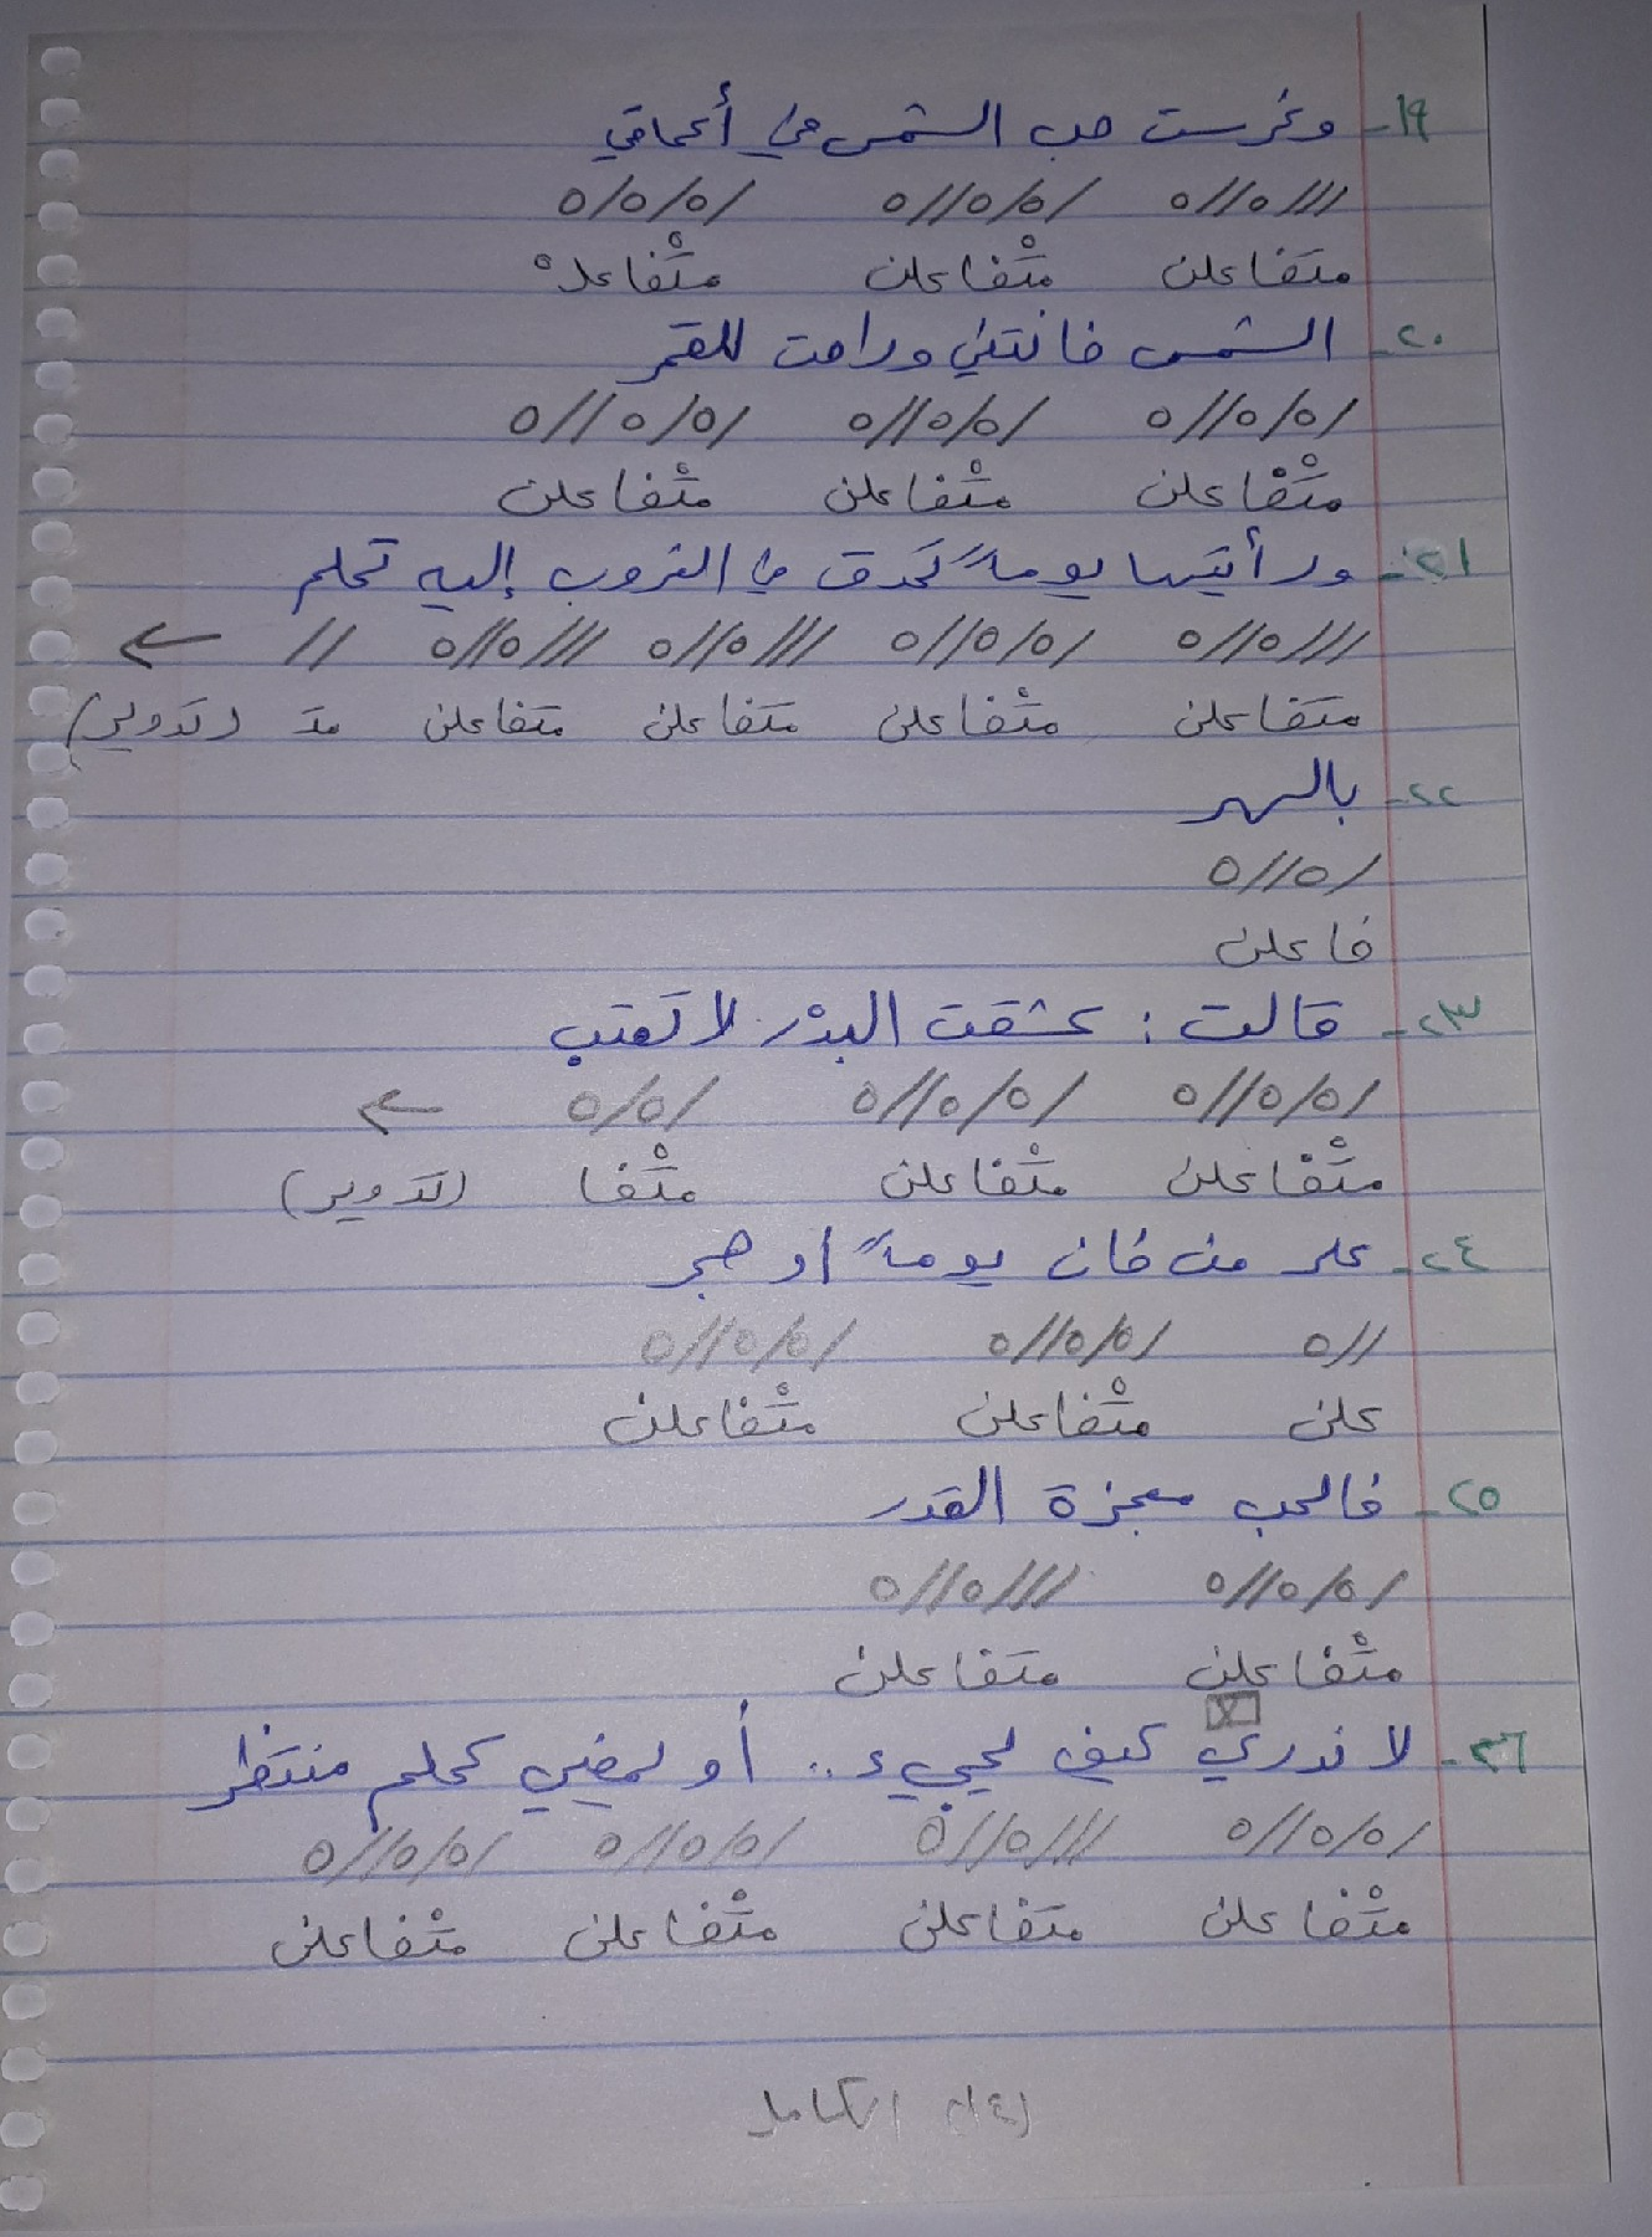 ١٩- وغرست حب الشمس في أعماقي
///٥//٥ /٥/٥//٥ /٥/٥/٥
متفاعلن متْفاعلن متْفاعلْ
٢٠- الشمس خانتني وراحت للقمر
/٥/٥//٥ /٥/٥//٥ /٥/٥//٥
متْفاعلن متْفاعلن متْفاعلن
٢١- ورأيتها يوماً تحدق في الغروب إليه تحلم
///٥//٥ /٥/٥//٥ ///٥//٥ ///٥//٥ // ←
متفاعلن متْفاعلن متفاعلن متفاعلن متَـ (تدوير)
٢٢- بالسهر
/٥//٥
فاعلن
٢٣- قالت : عشقت البدْر لا تعتب
/٥/٥//٥ /٥/٥//٥ /٥/٥ ←
متْفاعلن متْفاعلن متْفا (تدوير)
٢٤- على من خان يوماً أو هجر
//٥ /٥/٥//٥ /٥/٥//٥
علن متْفاعلن متْفاعلن
٢٥- فالحب معجزة القدر
/٥/٥//٥ ///٥//٥
متْفاعلن متفاعلن
٢٦- لا ندري كيف يجيء .. أو يمضي كحلم منتظر
/٥/٥//٥ ///٥//٥ /٥/٥//٥ /٥/٥//٥
متْفاعلن متفاعلن متْفاعلن متْفاعلن
(٤) الكامل